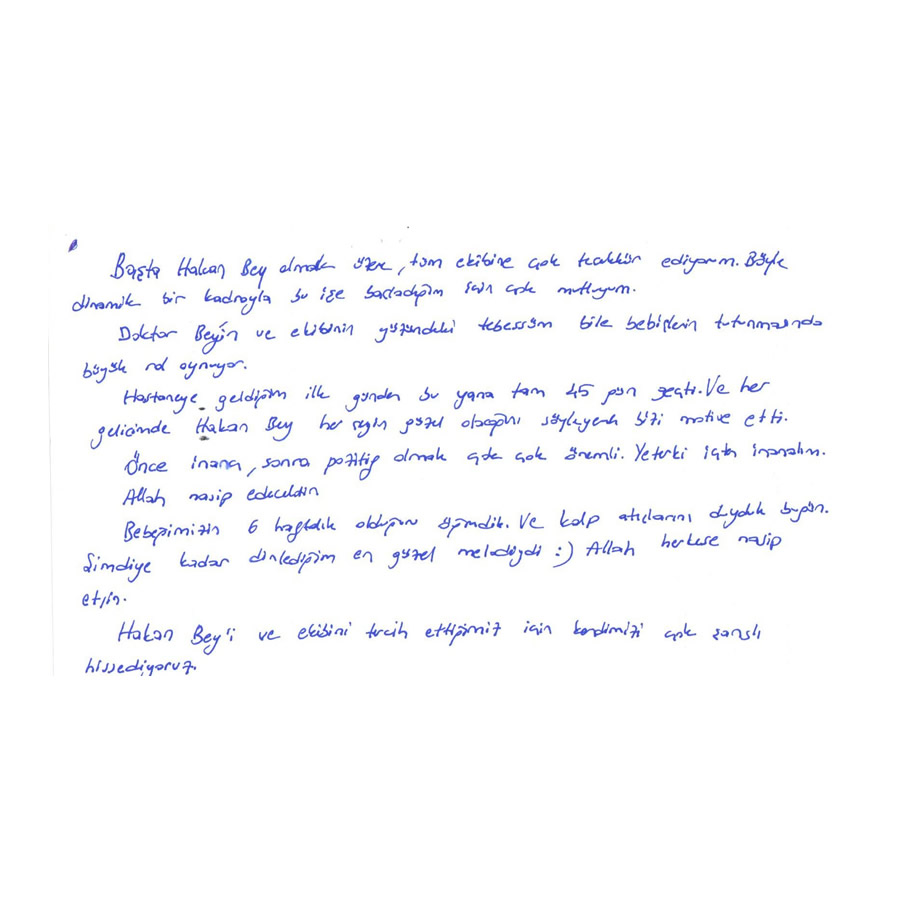 Başta Hakan Bey olmak üzere, tüm ekibine çok teşekkür ediyorum. Böyle
dinamik bir kadroyla bu işe başladığım için çok mutluyum.
Doktor Bey'in ve ekibinin yüzündeki tebessüm bile bebişlerin tutunmasında
büyük rol oynuyor.
Hastaneye geldiğim ilk günden bu yana tam 45 gün geçti. Ve her
gelişimde Hakan Bey her şeyin güzel olacağını söyleyerek bizi motive etti.
Önce inanç, sonra pozitif olmak çok çok önemli. Yeterki içten inanalım.
Allah nasip edecektir
Bebeğimizin 6 haftalık olduğunu öğrendik. Ve kalp atışlarını duyduk bugün.
Şimdiye kadar dinlediğim en güzel melodiydi :) Allah herkese nasip
etsin.
Hakan Bey'i ve ekibini tercih ettiğimiz için kendimizi çok şanslı
hissediyoruz.